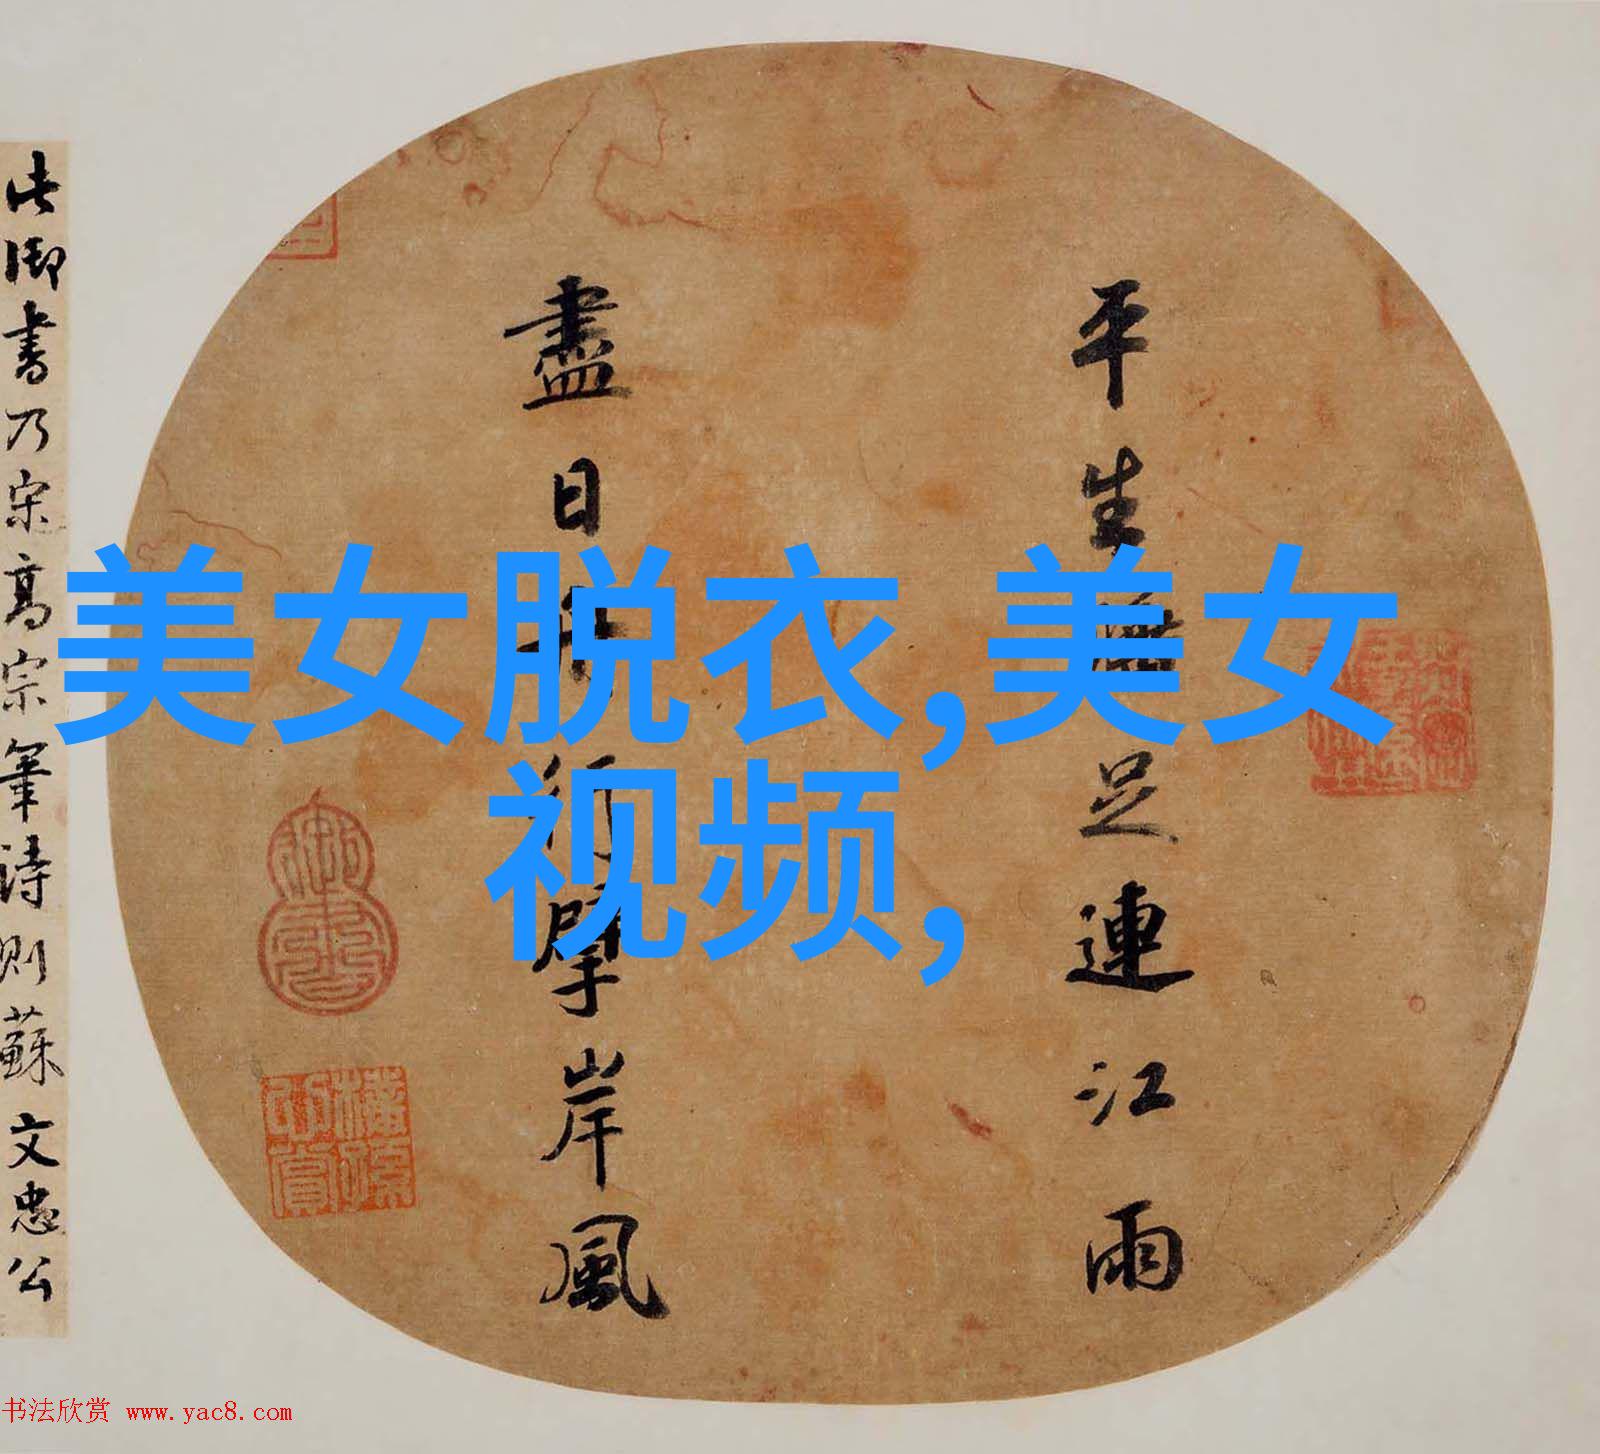 美女脱衣,美女
视频,
平生
足連江雨
盡日
行擘岸風
此御書乃宋高宗筆詩則蘇文忠公
书法欣赏 www.yac8.com